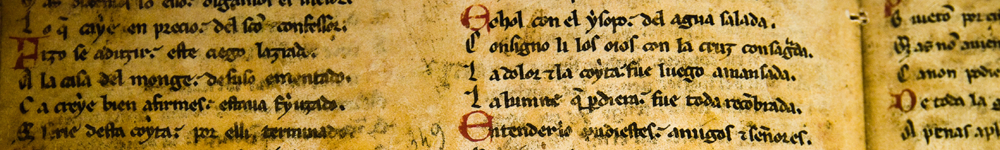 lo q̃ caye en precio: del sc̃o confessor.
Fizo se aduzir: este ciego lazrado.
A la casa del monge: de suso ementado.
Ca creye bien afirmes: estaua fyuzado.
serie desta coyta: por elli terminado.
Echol con el ysopo: del agua salada.
Consigno li los oios con la cruz consagͣda.
La dolor ⁊ la coyta: fue luego amansada.
La lumne q̃ p̱diera: fue toda recobrada.
Entender lo podiestes: amigos ⁊ señores.
Canon podie
De toda la
A penas ap